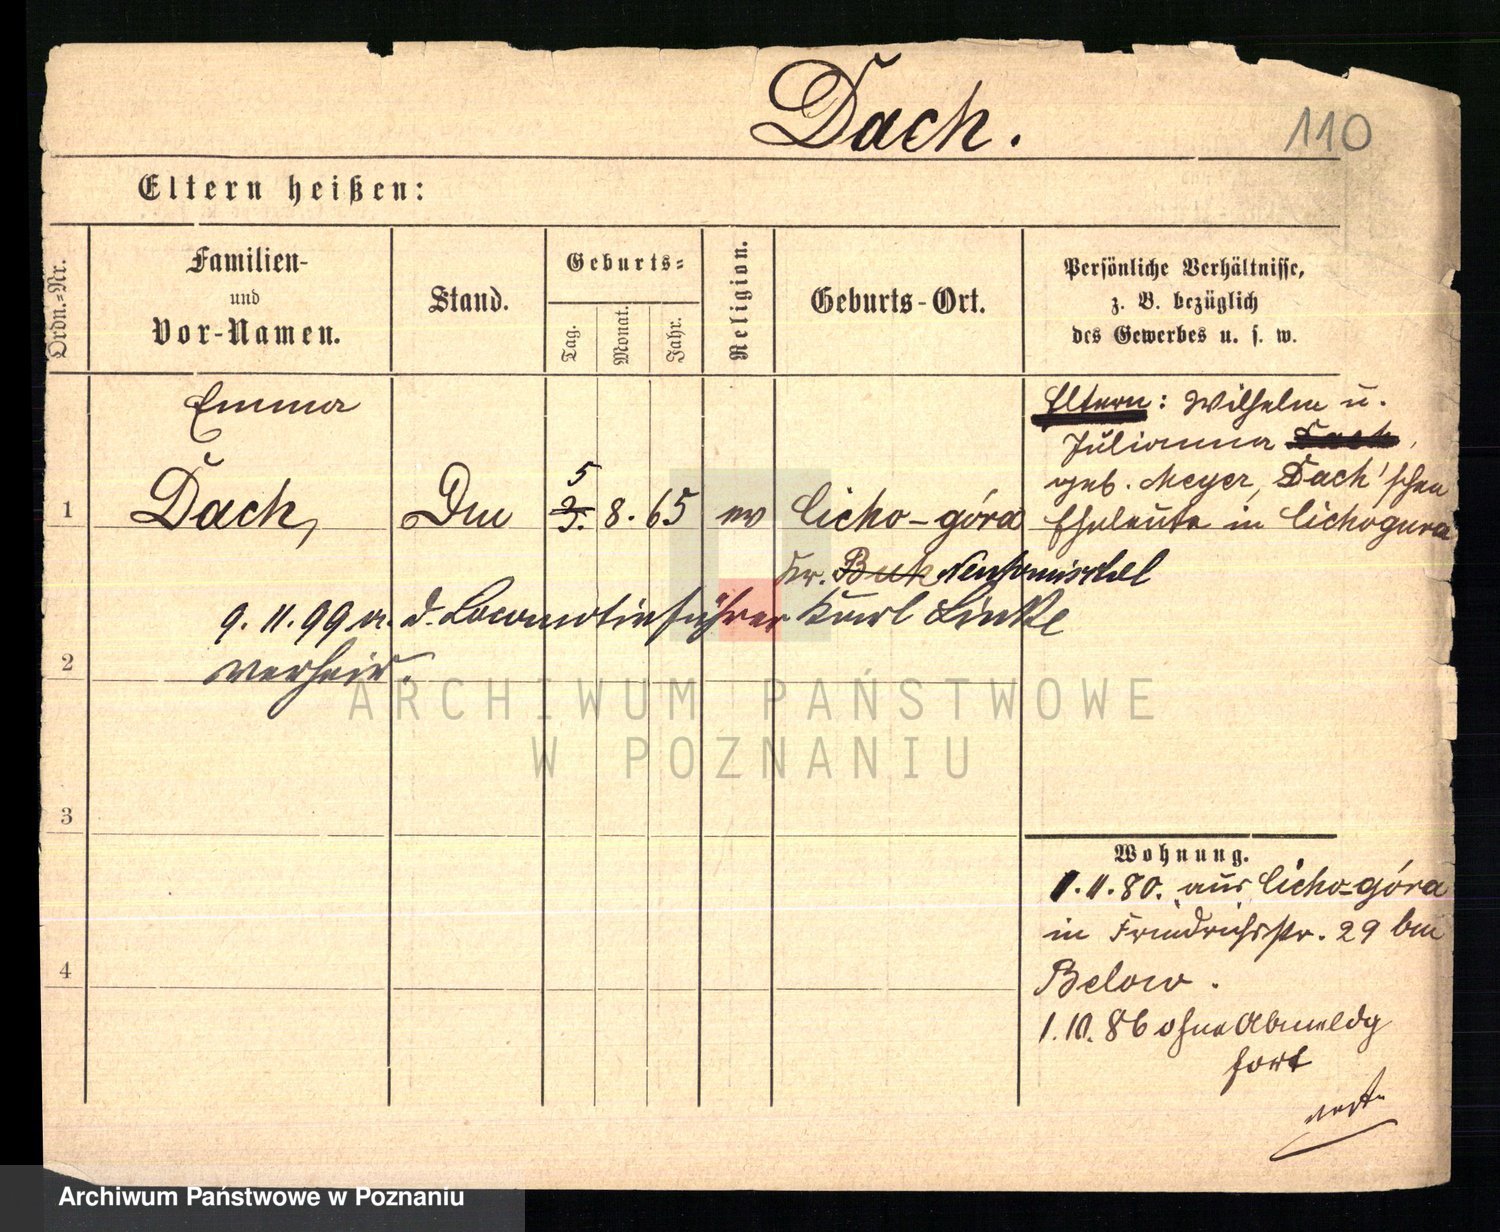 Dach.
110
Eltern heißen:
Ordn.-Nr.
Familien-
und
Vor-Namen.
Stand.
Geburts-
Tag.
Monat.
Jahr.
Religion.
Geburts-Ort.
Persönliche Verhältnisse,
z. B. bezüglich
des Gewerbes u. s. w.
Emma
1 Dach, 5 8. 65 ev Cicho-góra
Kr. Buk Neutomischel
Eltern: Wilhelm u.
Julianna Dach,
geb. Meyer, Dach'schen
Eheleute in Cichogura
9. 11. 99 a. d. Locomotivführer Karl Linke
2 verheir.
3
4
Wohnung.
1. 11. 80. aus Cicho-góra
in Friedrichstr. 29 bei
Below.
1. 10. 86 ohne Abmeldg
fort
ARCHIWUM PAŃSTWOWE
W POZNANIU
Archiwum Państwowe w Poznaniu